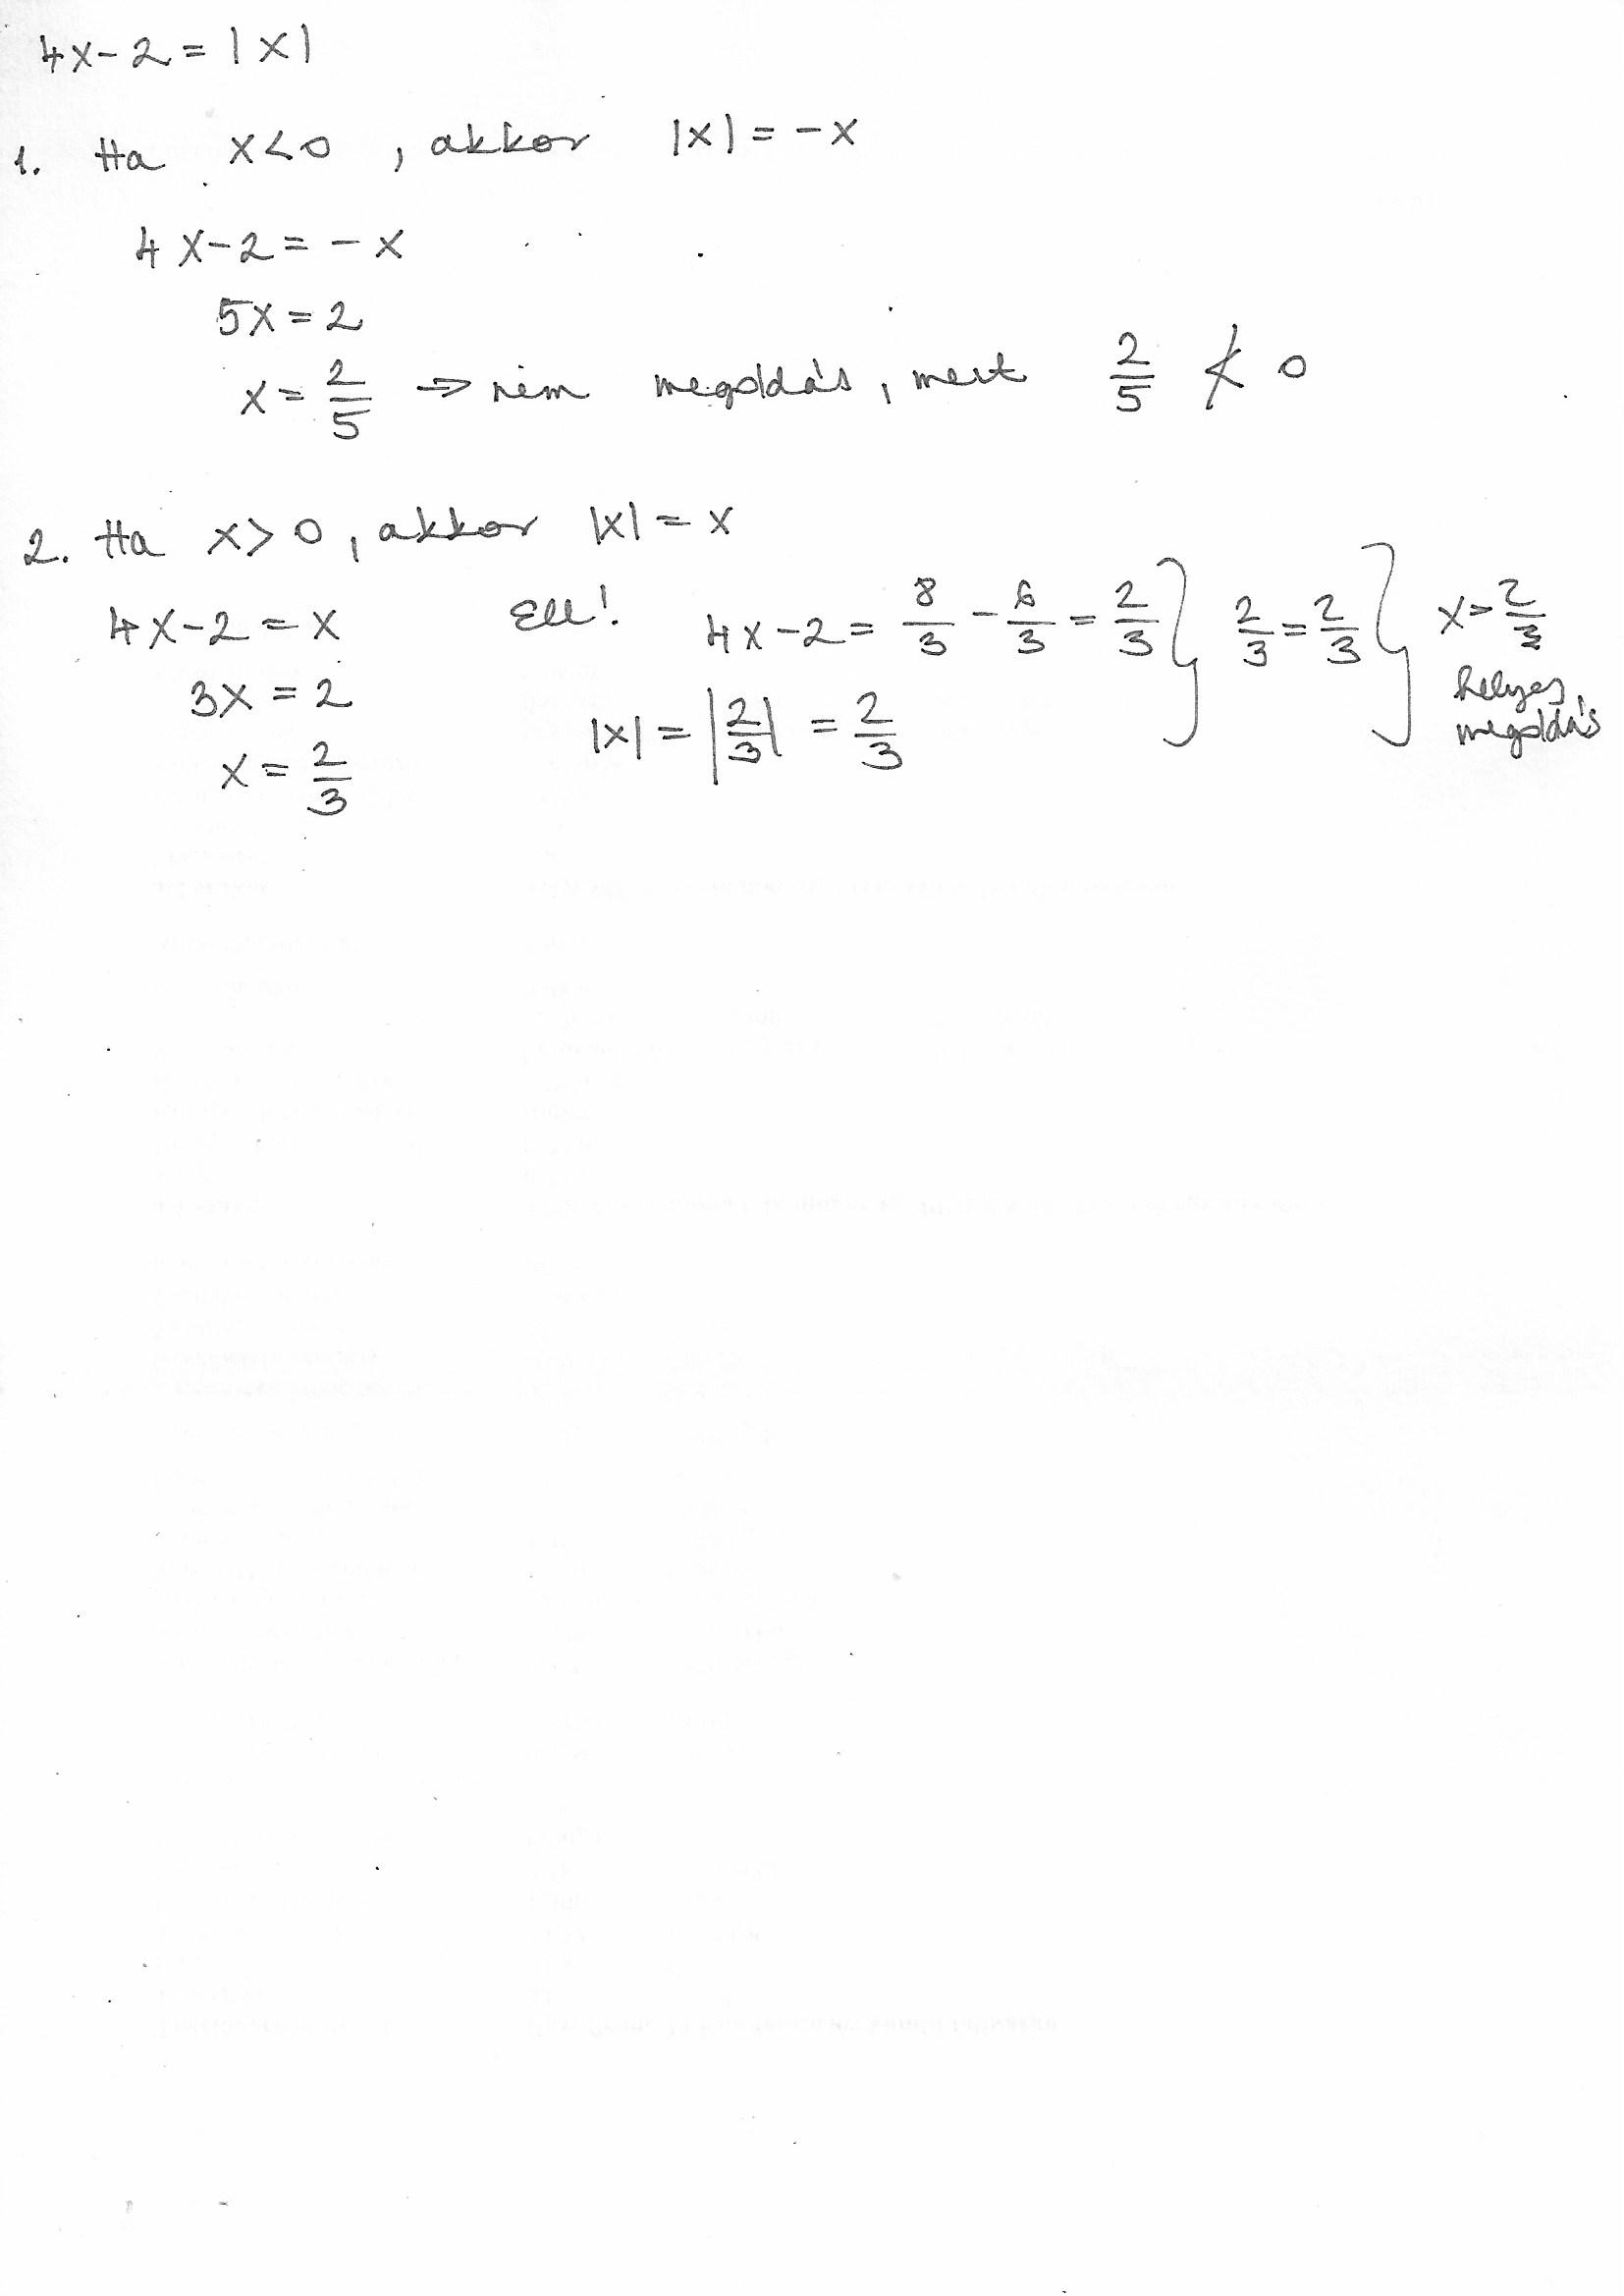 4x-2=|x|
1. Ha x<0, akkor |x|=-x
4x-2=-x
5x=2
x=2/5 => nem megoldás, mert 2/5 ≮ 0
2. Ha x>0, akkor |x|=x
4x-2=x Ell! 4x-2=8/3-6/3=2/3 } 2/3=2/3 } x=2/3
3x=2 |x|=|2/3|=2/3 helyes
x=2/3 megoldás